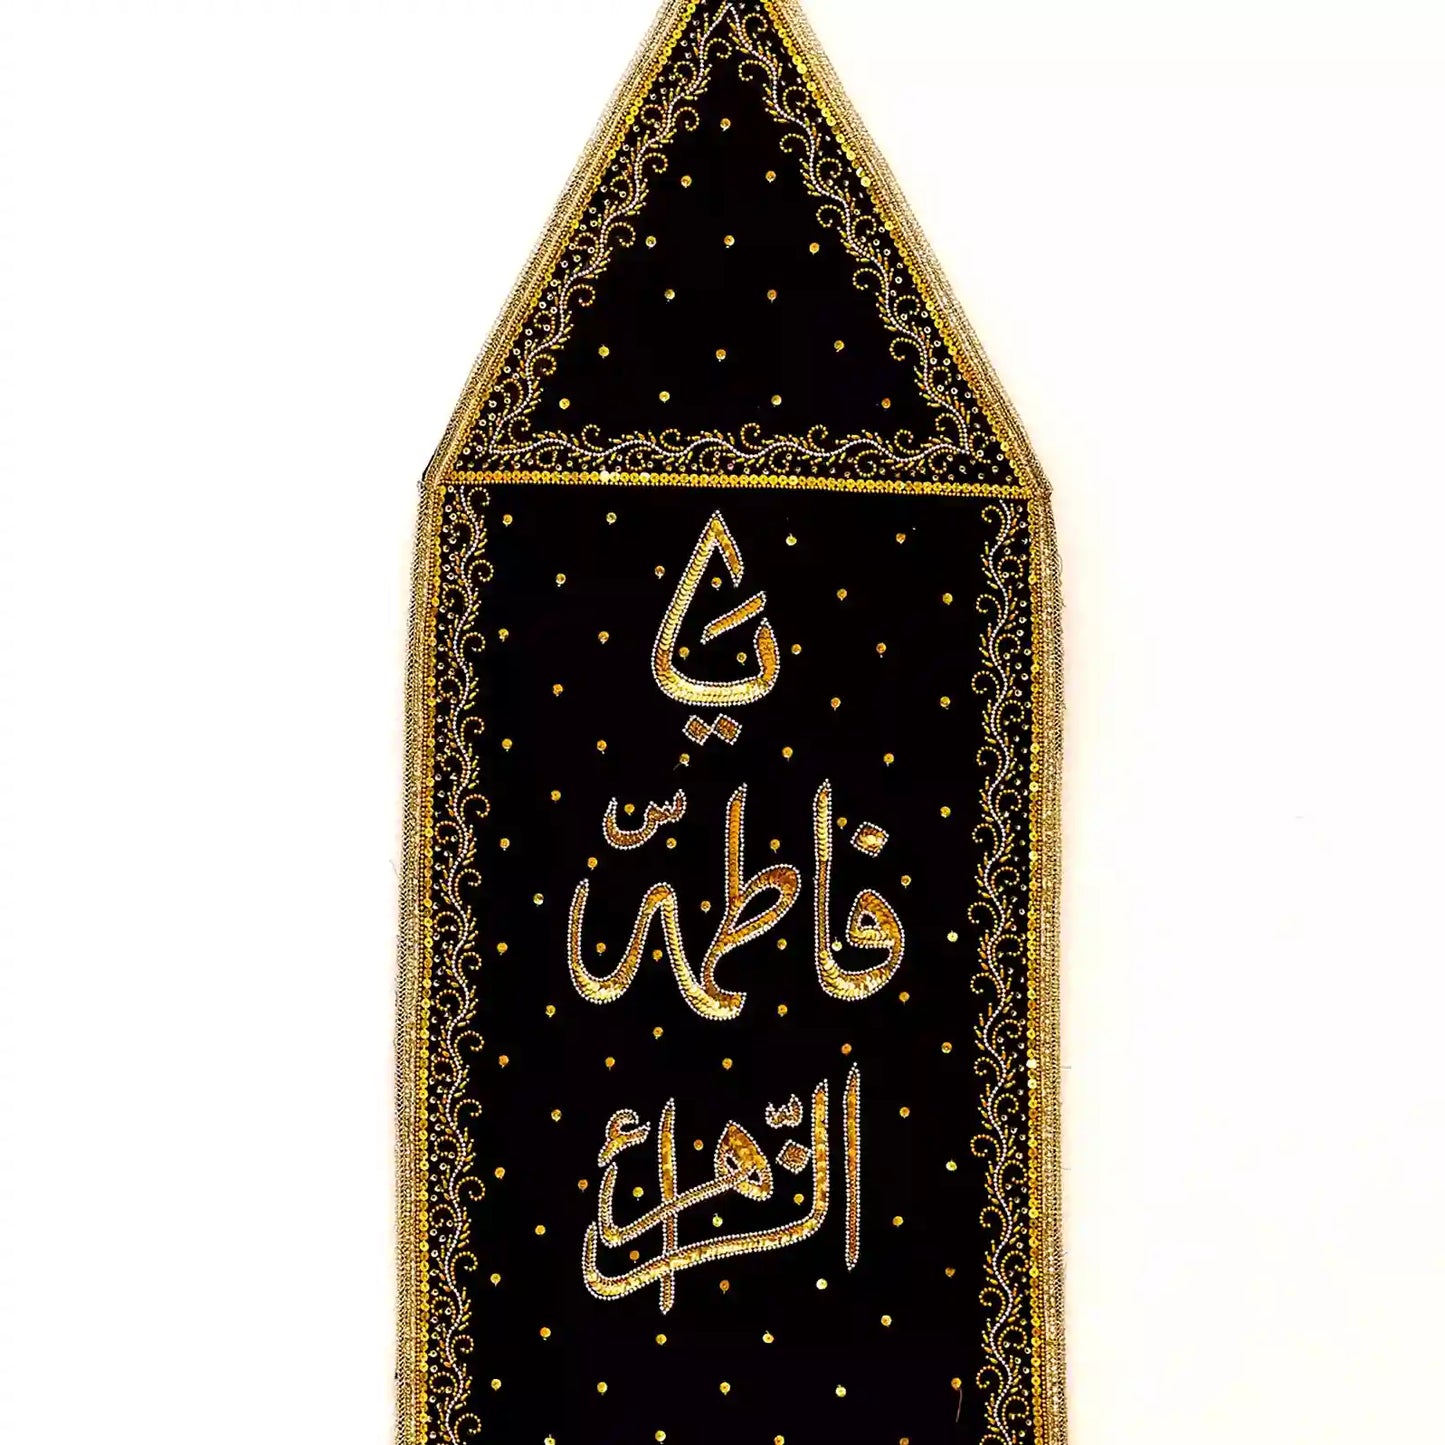 يا
فاطمّة
الزّهراء